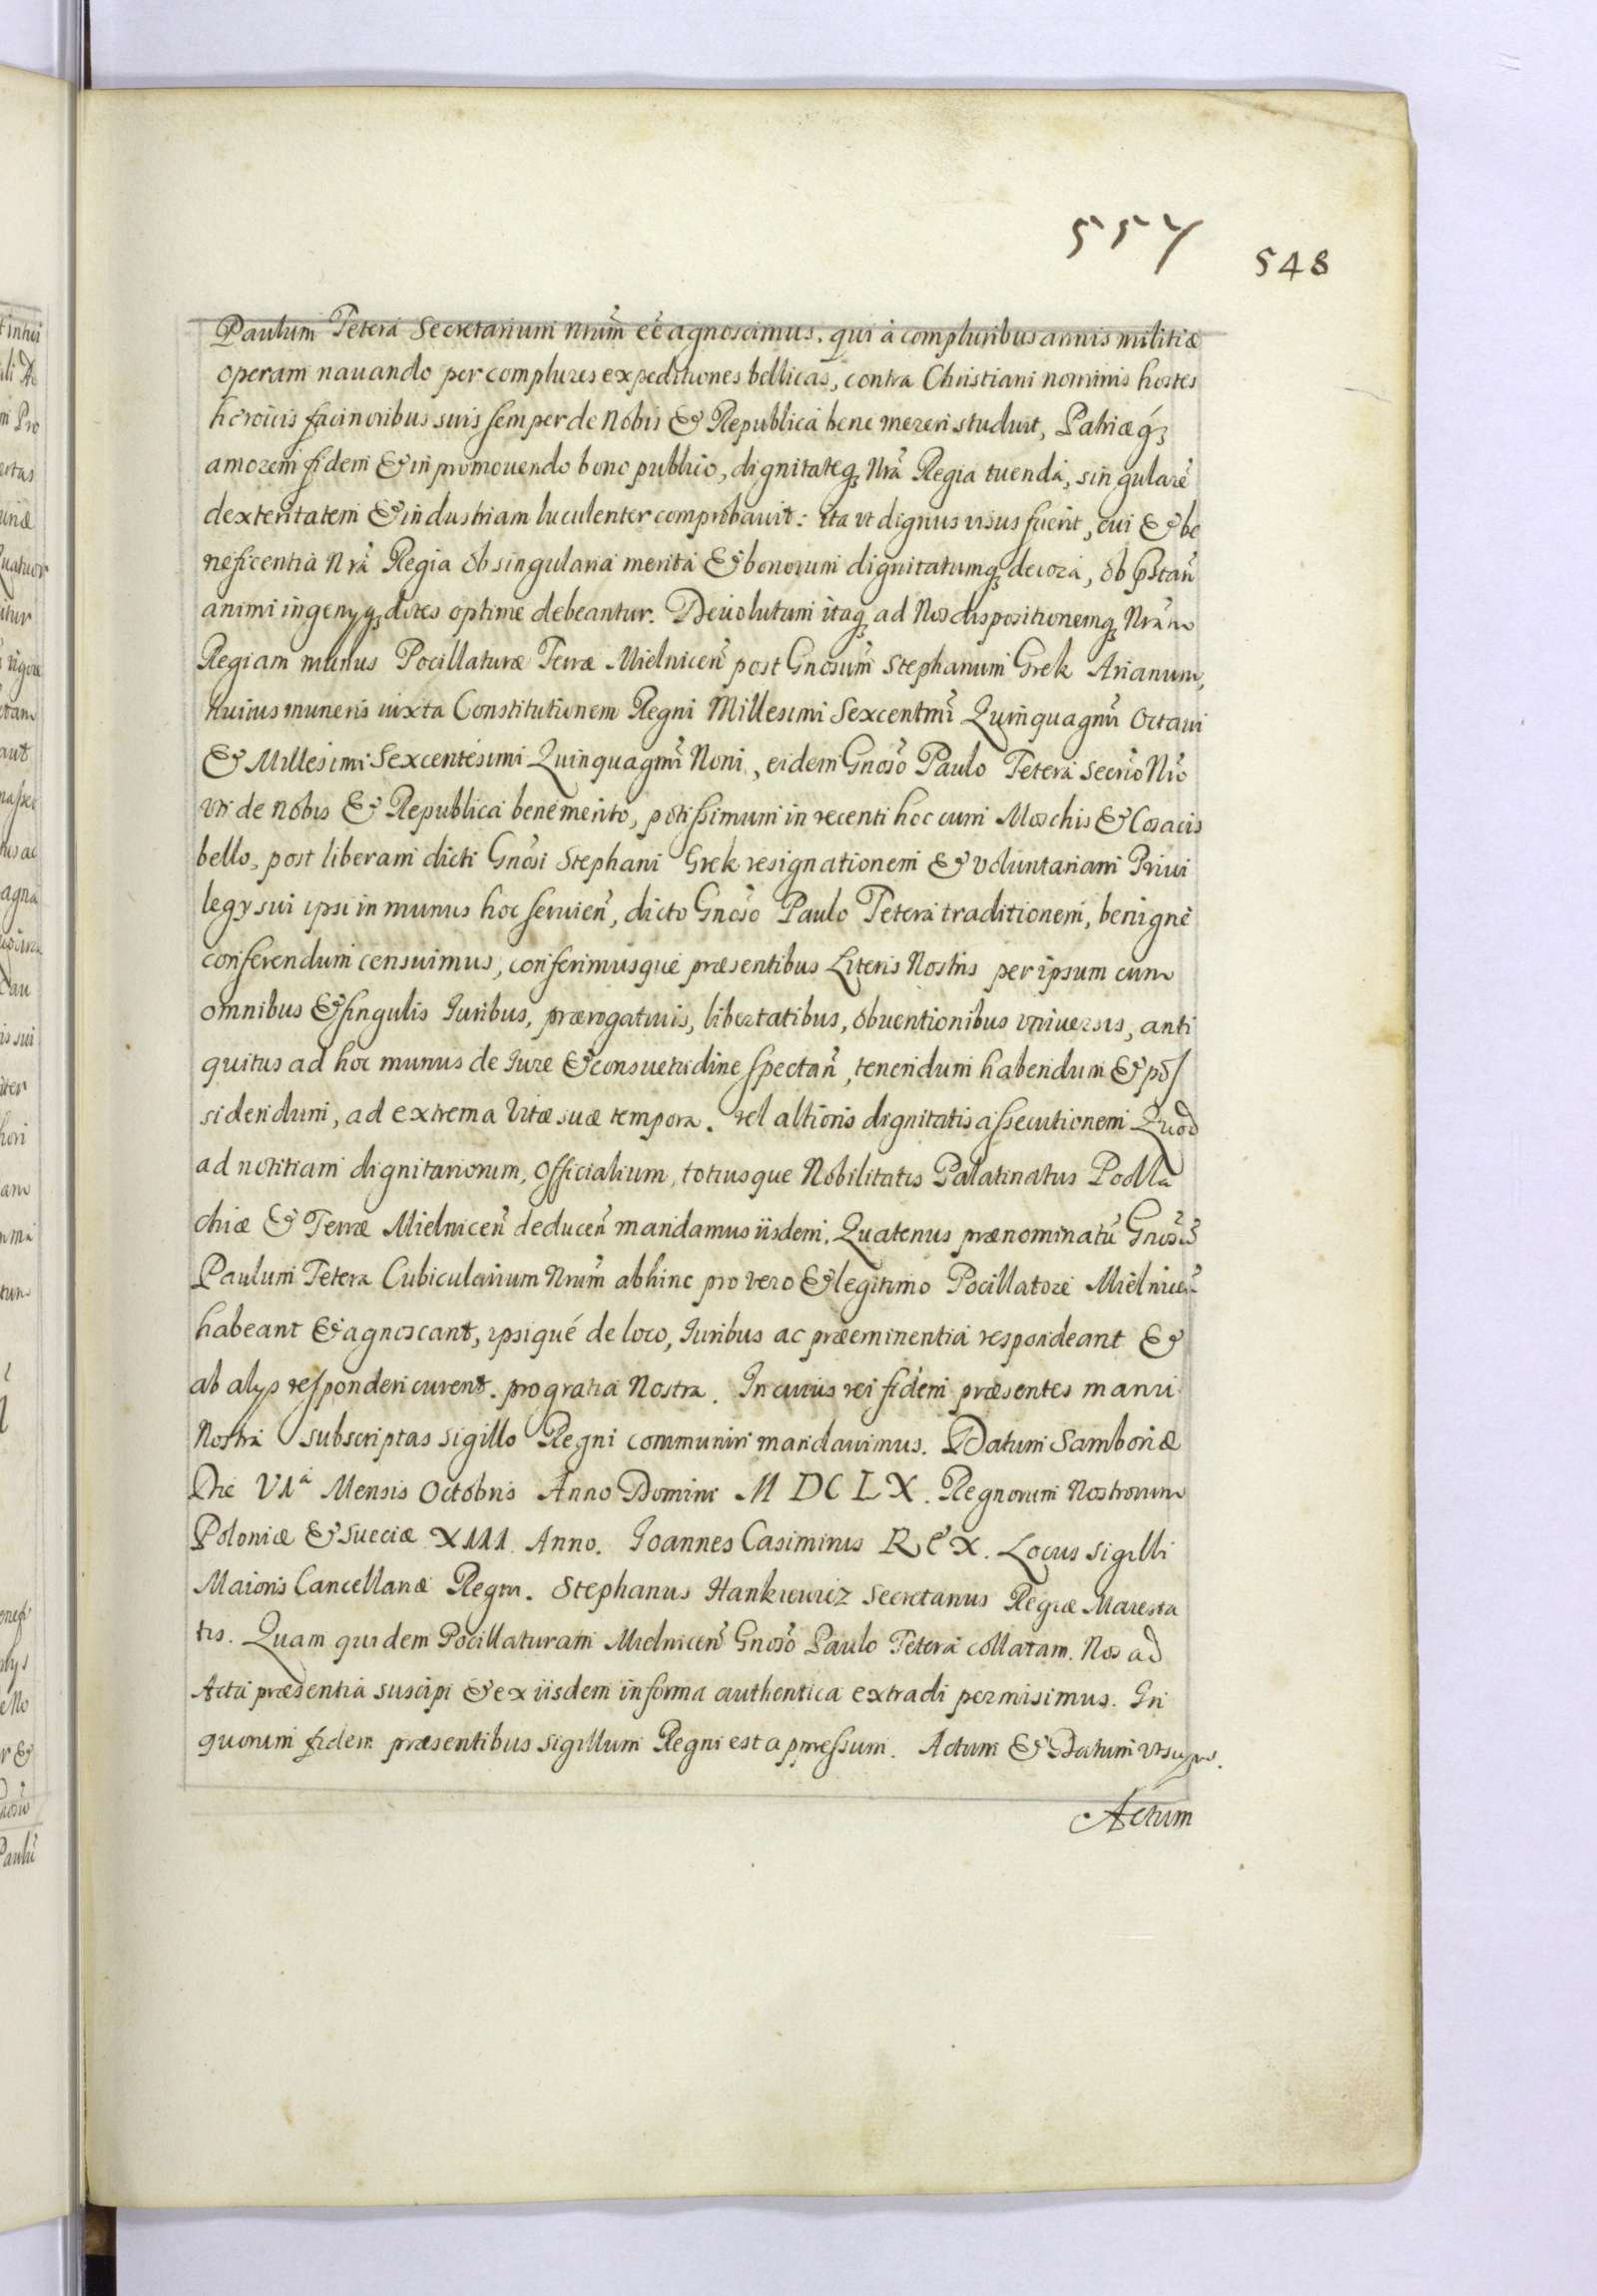 557
548
Paulum Tetera Secretarium Nrũm eẽ agnoscimus. qui à compluribus annis militiæ
operam nauando per complures expeditiones bellicas, contra Christiani nominis hostes
heroicis facinoribus suis semper de Nobis & Republica bene mereri studuit, Patriæq́ꝫ
amorem fidem & in promouendo bono publico, dignitateqꝫ Nrã Regia tuenda, singularẽ
dexteritatem & industriam luculenter comprobauit: ita vt dignus visus fuerit, cui & be
neficentia Nrã Regia ob singularia merita & bonorum dignitatumqꝫ decora, ob pstañ
animi ingenyqꝫ dotes optime debeantur. Deuolutum itaqꝫ ad Nos dispositionemqꝫ Nrãm
Regiam munus Pocillaturæ Terræ Mielniceñ post Gnosũm Stephanum Grek Arianum,
huius muneris iuxta Constitutionem Regni Millesimi Sexcentmĩ Quinquagmĩ Octaui
& Millesimi Sexcentesimi Quinquagmĩ Noni, eidem Gnosõ Paulo Tetera Secriõ Nrõ
vti de nobis & Republica benemerito, potissimum in recenti hoc cum Moschis & Cosacis
bello, post liberam dicti Gnosĩ Stephani Grek resignationem & voluntariam Priui
legy sui ipsi in munus hoc seruieñ, dicto Gnosõ Paulo Tetera traditionem, benignè
conferendum censuimus, conferimusque præsentibus Literis Nostris per ipsum cum
omnibus & singulis Juribus, prærogatiuis, libertatibus, obuentionibus vniuersis, anti
quitus ad hoc munus de Jure & consuetudine spectañ, tenendum habendum & pos
sidendum, ad extrema vitæ suæ tempora. vel altioris dignitatis assecutionem Quod
ad notitiam dignitariorum, Officialium, totiusque Nobilitatis Palatinatus Podla
chiæ & Terræ Mielniceñ deduceñ mandamus iisdem. Quatenus prænominatũ Gnosũ
Paulum Tetera Cubicularium Nrũm abhinc pro vero & legitimo Pocillatore Mielniceñ
habeant & agnoscant, ipsiqué de loco, Juribus ac præeminentia respondeant &
ab alys responderi curent. pro gratia Nostra. In cuius rei fidem præsentes manu
Nostra subscriptas sigillo Regni communiri mandauimus. Datum Samboriæ
Die VIa Mensis Octobris Anno Domini M DC LX. Regnorum Nostrorum
Poloniæ & Sueciæ XIII Anno. Joannes Casimirus REX. Locus Sigilli
Maioris Cancellariæ Regni. Stephanus Hankiewicz Secretarius Regiæ Maiesta
tis. Quam quidem Pocillaturam Mielniceñ Gnosõ Paulo Tetera collatam. Nos ad
Acta præsentia suscipi & ex iisdem in forma authentica extradi permisimus. In
quorum fidem præsentibus Sigillum Regni est appressum. Actum & Datum vt supra.
Actum